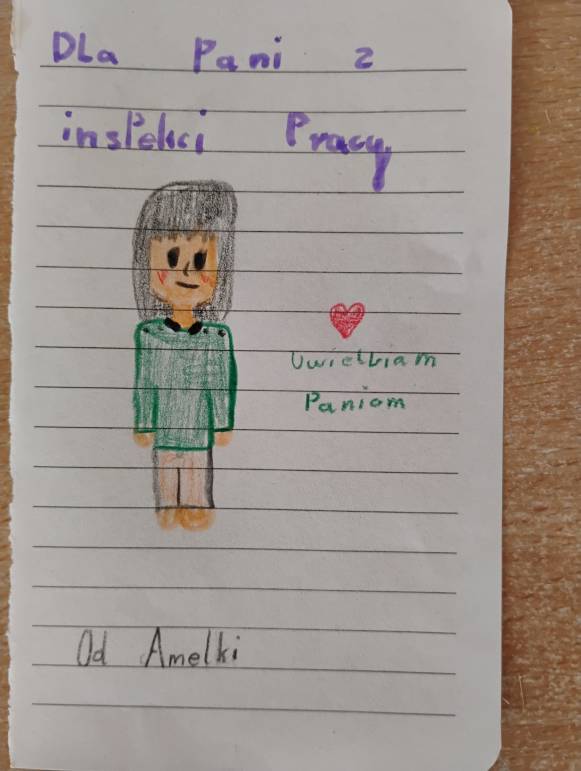 DLa Pani z
insPekci Pracy
Uwielbiam
Paniom
Od Amelki